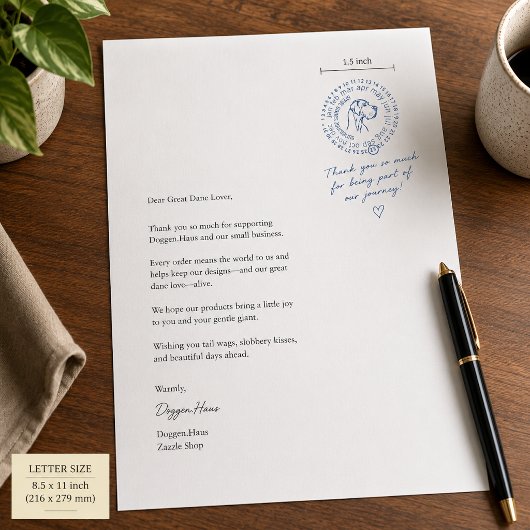 1.5 inch
jan feb mar apr may jun jul aug sep oct nov dec
Thank you so much
for being part of
our journey!
Dear Great Dane Lover,
Thank you so much for supporting
Doggen.Haus and our small business.
Every order means the world to us and
helps keep our designs—and our great
dane love—alive.
We hope our products bring a little joy
to you and your gentle giant.
Wishing you tail wags, slobbery kisses,
and beautiful days ahead.
Warmly,
Doggen.Haus
Doggen.Haus
Zazzle Shop
LETTER SIZE
8.5 x 11 inch
(216 x 279 mm)